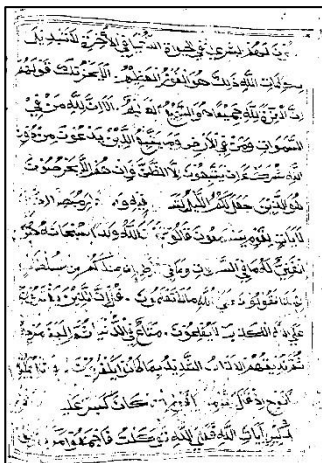 لهم البشرى في الحيوة الدنيا وفي الاخرة لا تبديل
لكلمات الله ذلك هو الفوز العظيم ولا يحزنك قولهم
ان العزة لله جميعا هو السميع العليم الا ان لله من في
السموات ومن في الارض وما يتبع الذين يدعون من دون
الله شركاء ان يتبعون الا الظن وان هم الا يخرصون
هو الذي جعل لكم الليل لتسكنوا فيه والنهار مبصرا
لايات لقوم يسمعون قالوا اتخذ الله ولدا سبحانه هو
الغني له ما في السموات وما في الارض ان عندكم من سلطان
بهذا اتقولون على الله ما لا تعلمون قل ان الذين يفترون
على الله الكذب لا يفلحون متاع في الدنيا ثم الينا مرجعهم
ثم نذيقهم العذاب الشديد بما كانوا يكفرون واتل
نوح اذ قال لقومه يا قوم ان كان كبر عليكم
بايات الله فعلى الله توكلت فاجمعوا امركم